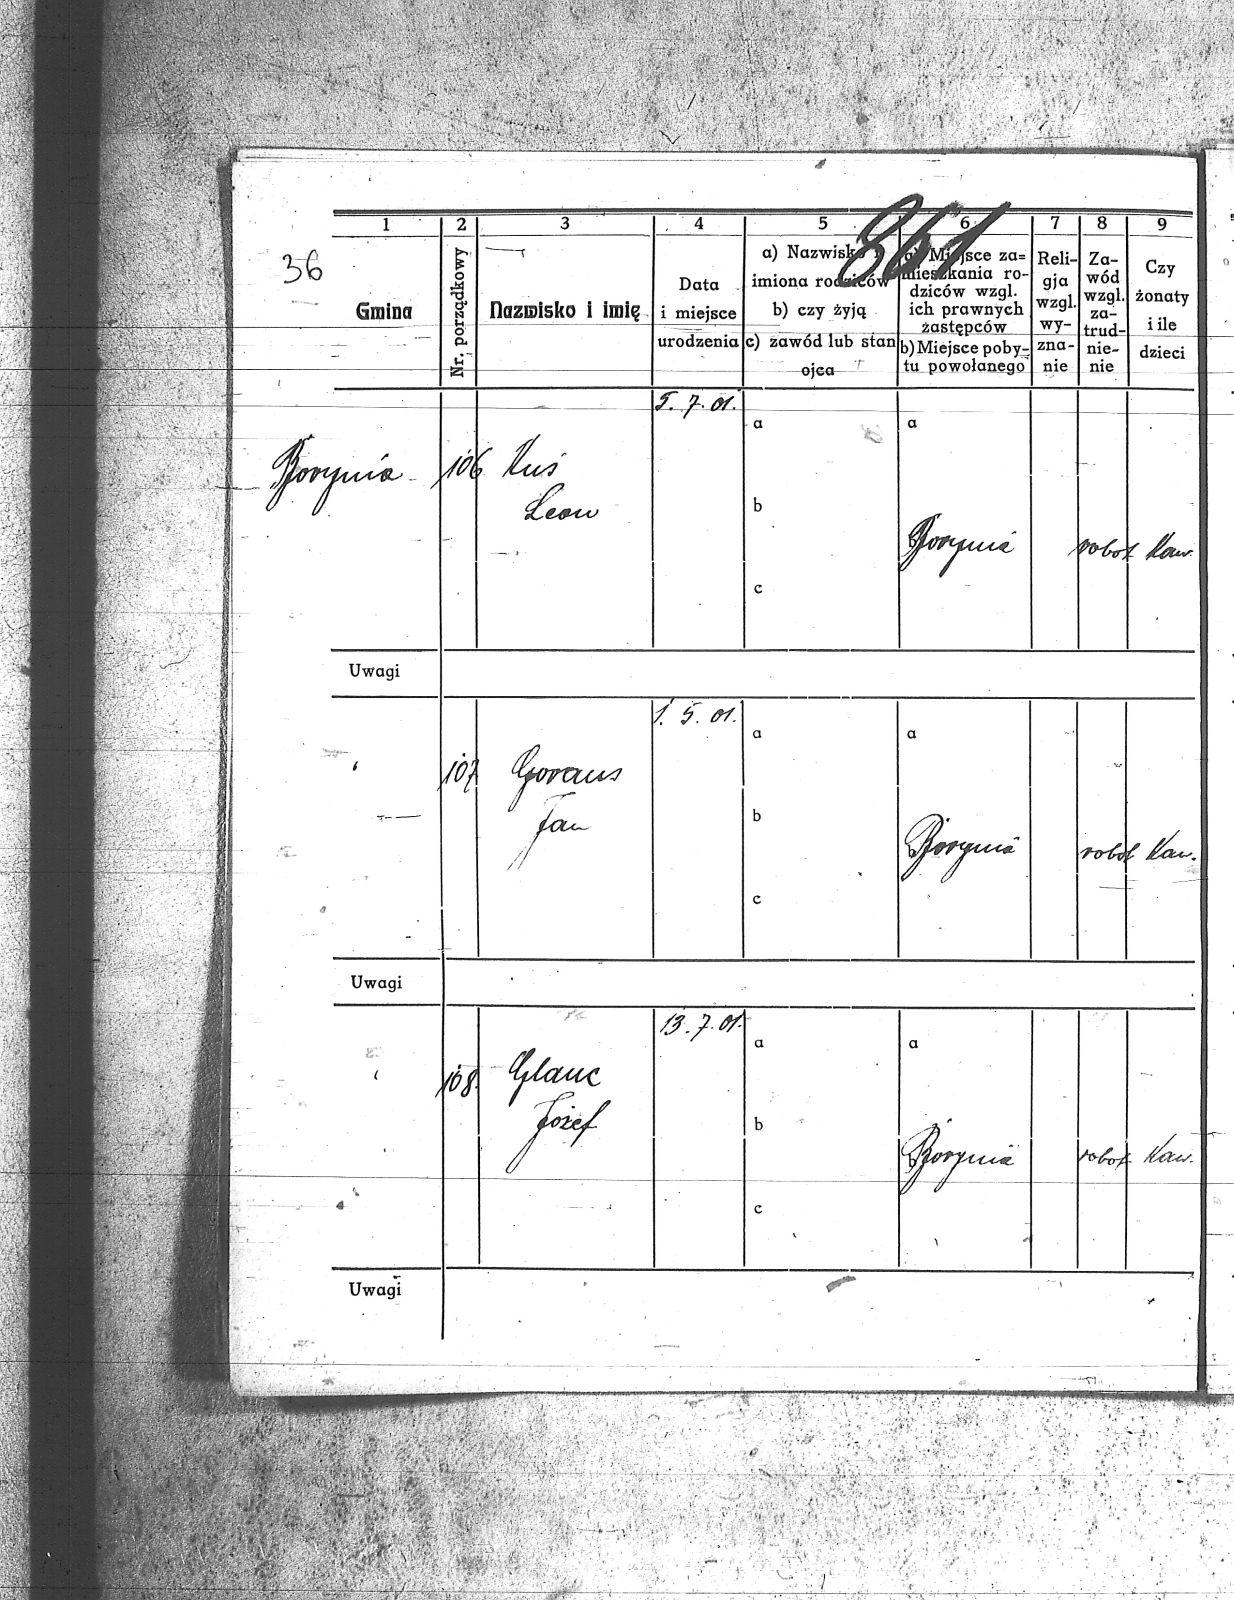 861
36
1 2 3 4 5 6 7 8 9
Gmina
Nr. porządkowy
Nazwisko i imię
Data
i miejsce
urodzenia
a) Nazwisko i
imiona rodziców
b) czy żyją
c) zawód lub stan
ojca
a) Miejsce za=
mieszkania ro-
dziców wzgl.
ich prawnych
zastępców
b) Miejsce poby-
tu powołanego
Reli-
gja
wzgl.
wy-
zna-
nie
Za-
wód
wzgl.
za-
trud-
nie-
nie
Czy
żonaty
i ile
dzieci
5. 7. 01.
a a
Borynia 106 Kuś
Leon
b
Borynia robot Kaw.
c
Uwagi
1. 5. 01.
a a
" 107 Goraus
Jan
b
Borynia robot Kaw.
c
Uwagi
13. 7. 01.
a a
" 108. Glauc
Józef
b
Borynia robot Kaw.
c
Uwagi